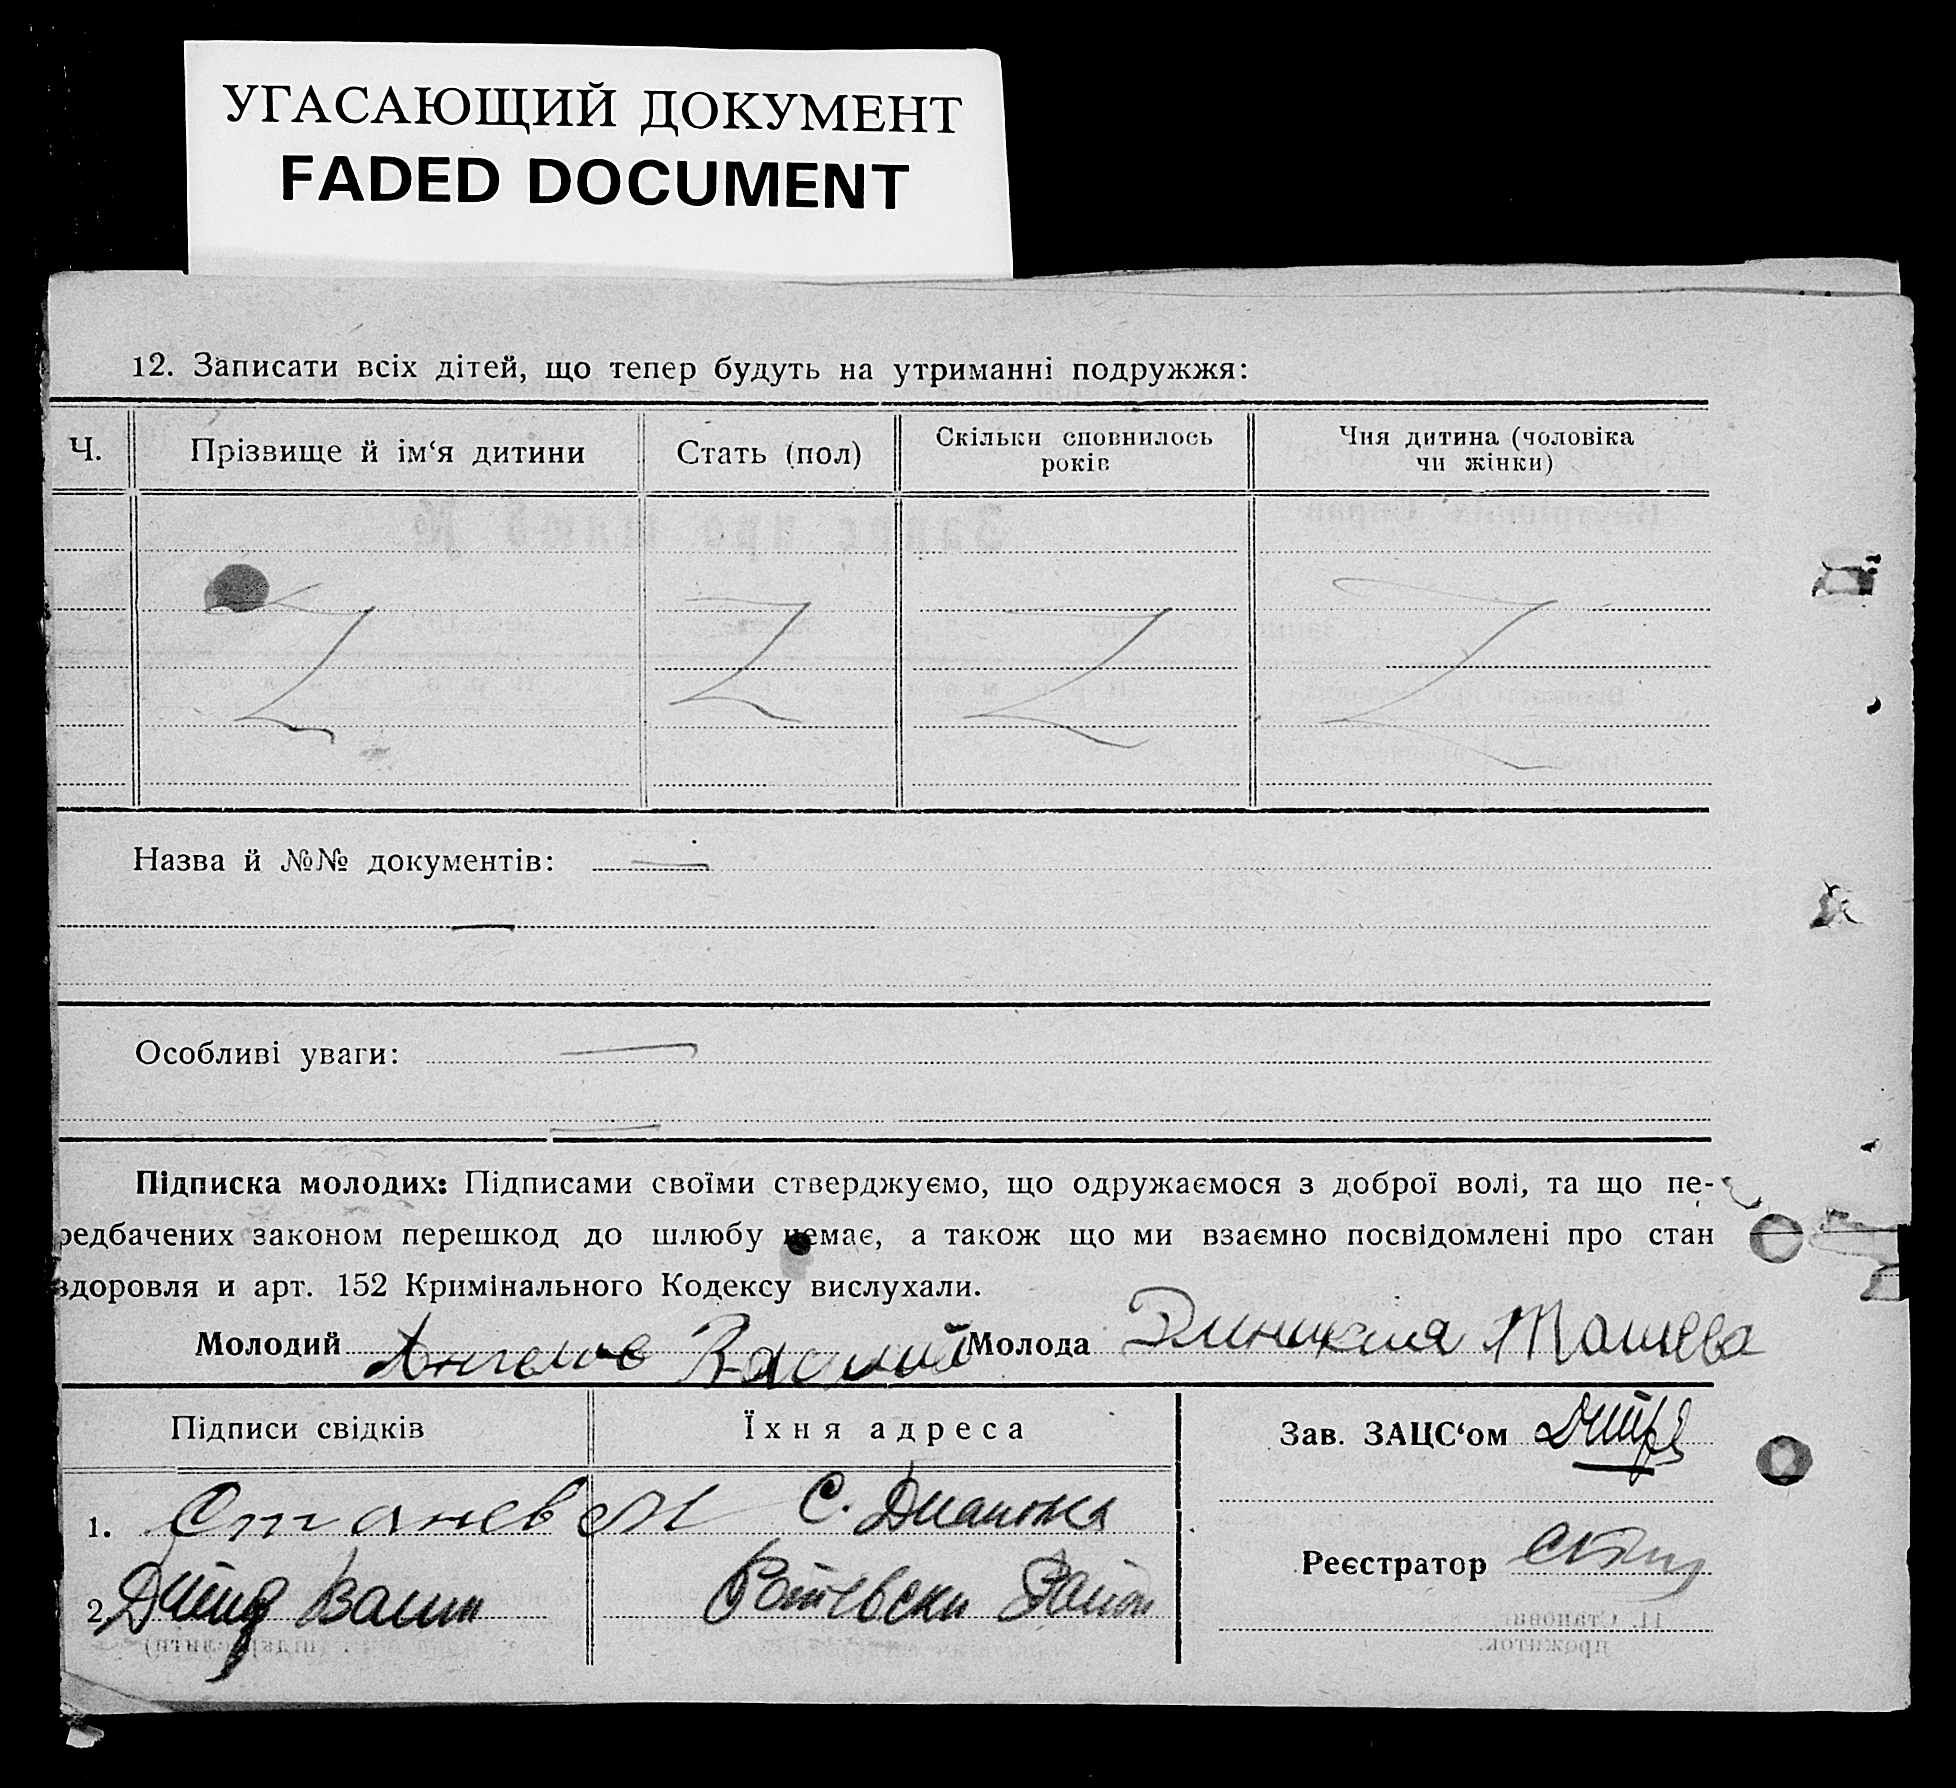 УГАСАЮЩИЙ ДОКУМЕНТ
FADED DOCUMENT
12. Записати всіх дітей, що тепер будуть на утриманні подружжя:
Ч. Прізвище й ім‘я дитини Стать (пол) Скільки сповнилось років Чия дитина (чоловіка чи жінки)
Назва й №№ документів:
Особливі уваги:
Підписка молодих: Підписами своїми стверджуємо, що одружаємося з доброї волі, та що пе-
редбачених законом перешкод до шлюбу немає, а також що ми взаємно посвідомлені про стан
здоровля и арт. 152 Кримінального Кодексу вислухали.
Молодий Ангелов Василий Молода
Підписи свідків Їхня адреса Зав. ЗАЦС‘ом
1. Станев С.
Реєстратор
2.